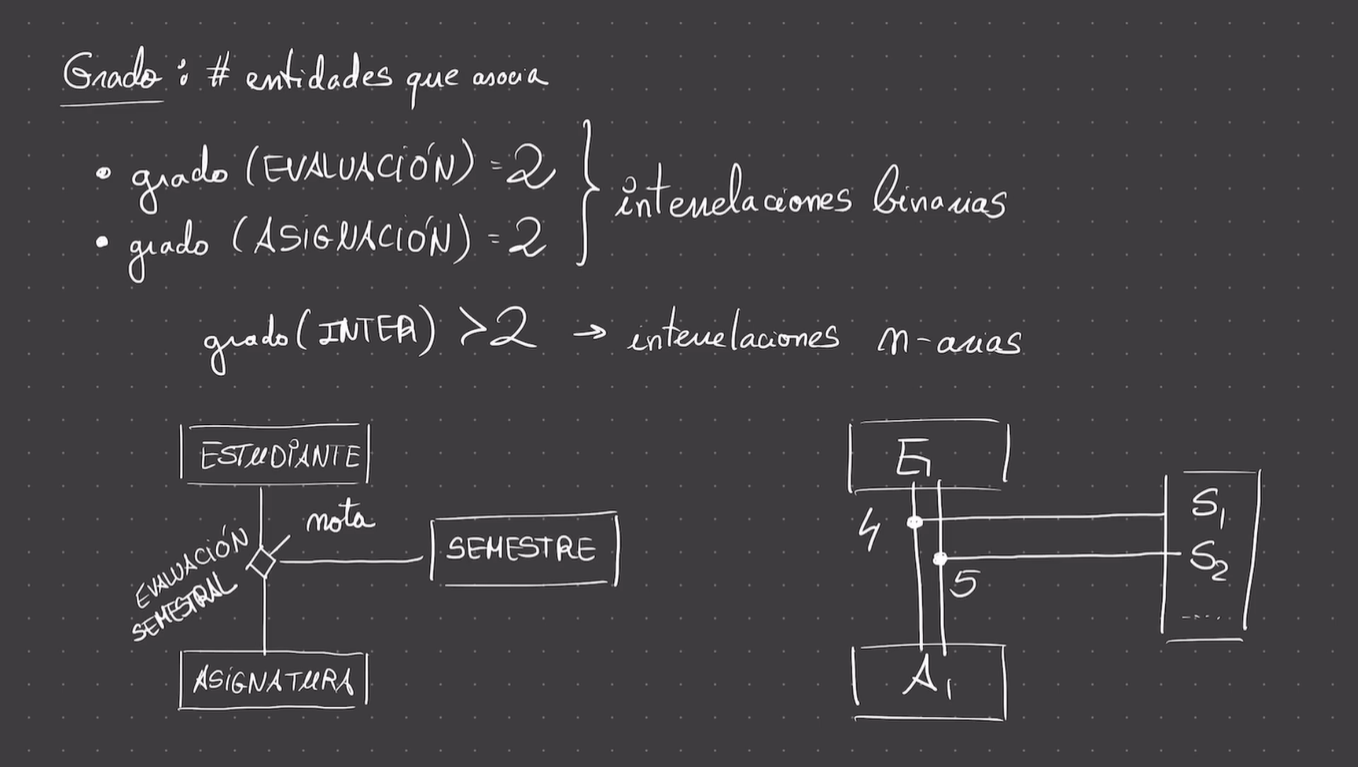 Grado : # entidades que asocia
• grado (EVALUACIÓN) = 2
• grado (ASIGNACIÓN) = 2
interrelaciones binarias
grado (INTER) > 2 → interrelaciones n-arias
ESTUDIANTE
nota
EVALUACIÓN
SEMESTRAL
SEMESTRE
ASIGNATURA
E1
4
S1
S2
5
....
A1